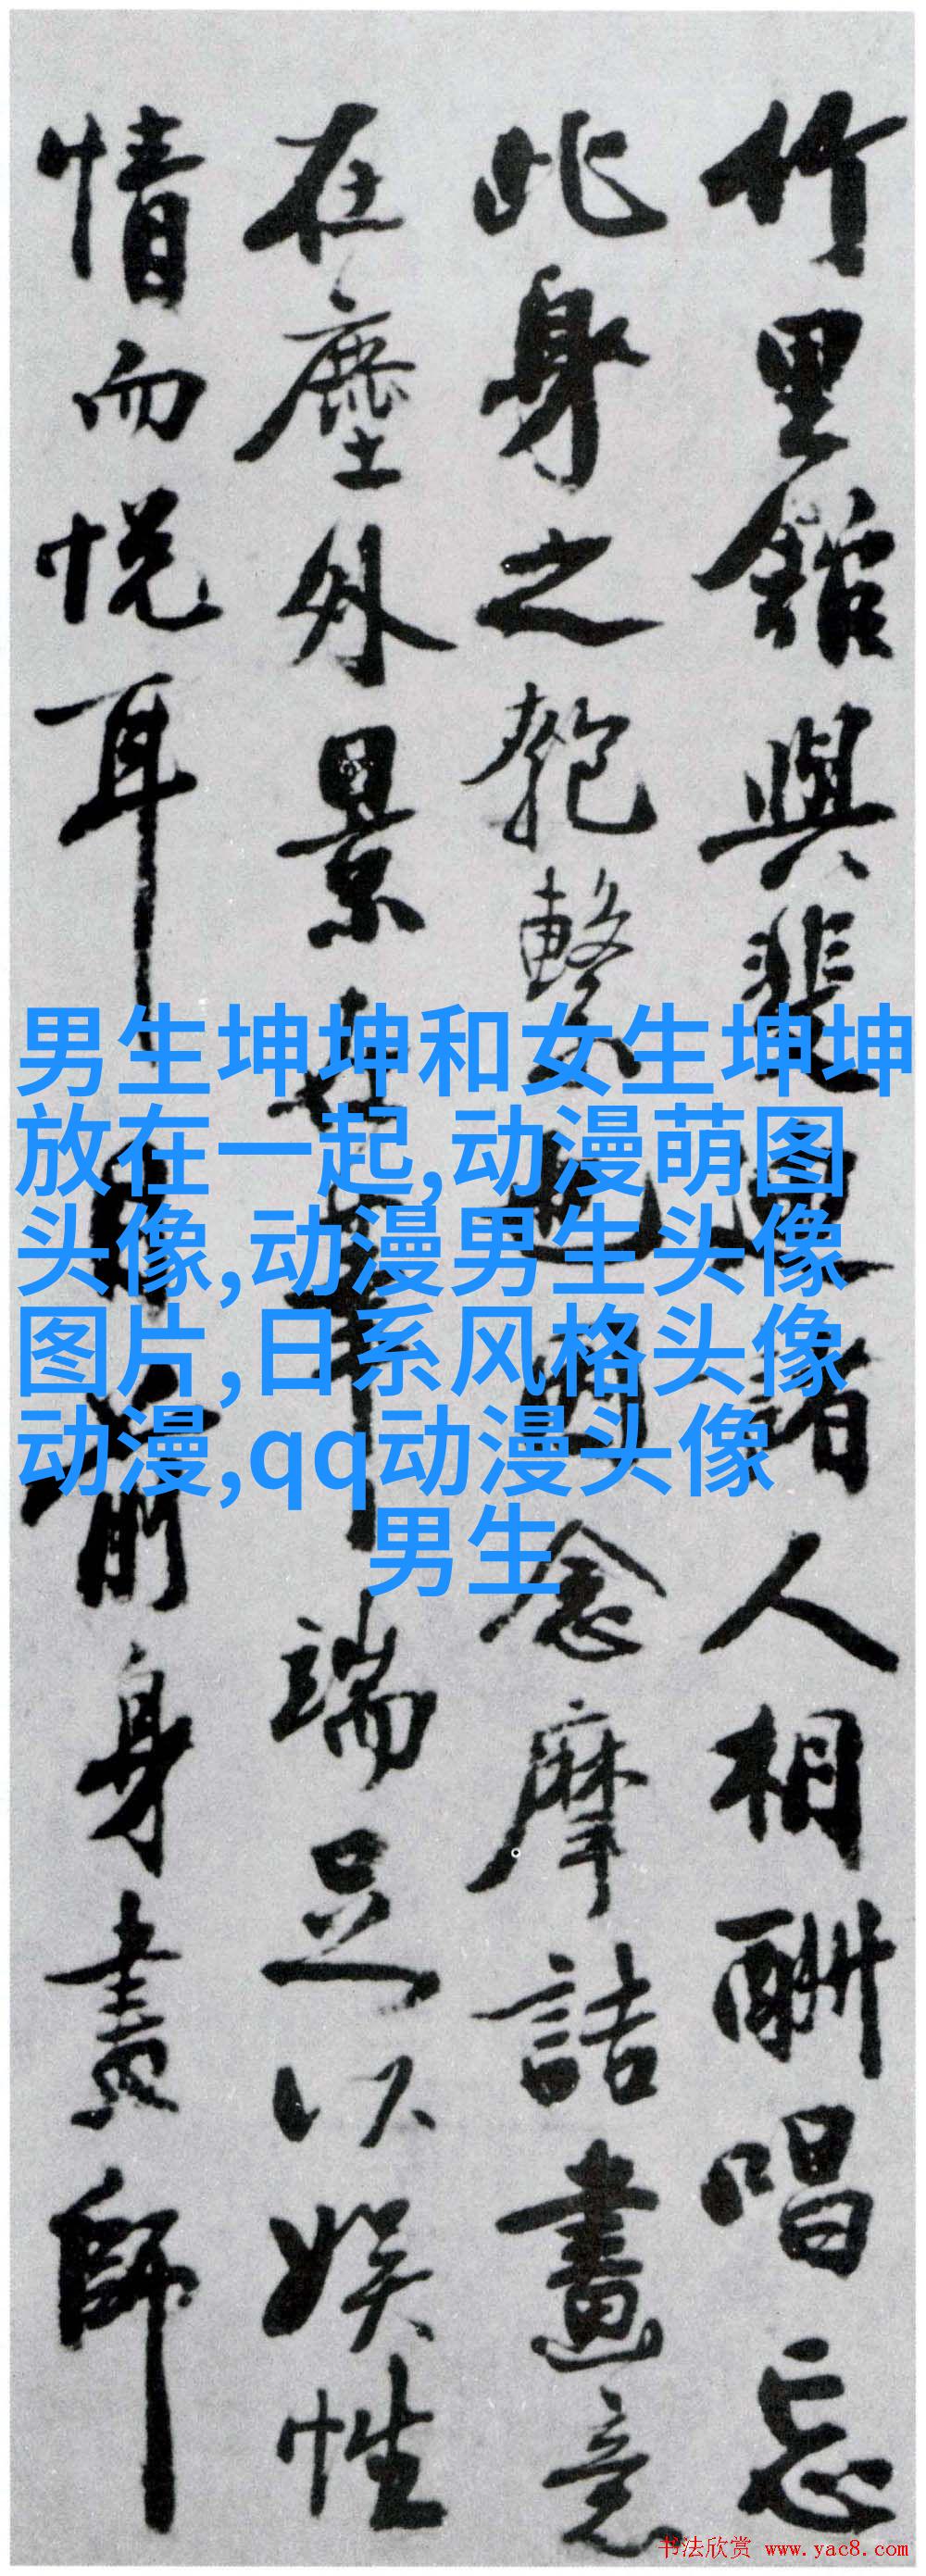 竹里館與裴迪諸人相酬唱忘
此身之匏繫也因念摩詰畫意
在塵外景筆端足以娛性
情而悅耳目前身畫師
男生坤坤和女生坤坤
放在一起,动漫萌图
头像,动漫男生头像
图片,日系风格头像
动漫,qq动漫头像
男生
书法欣赏 www.yac8.com